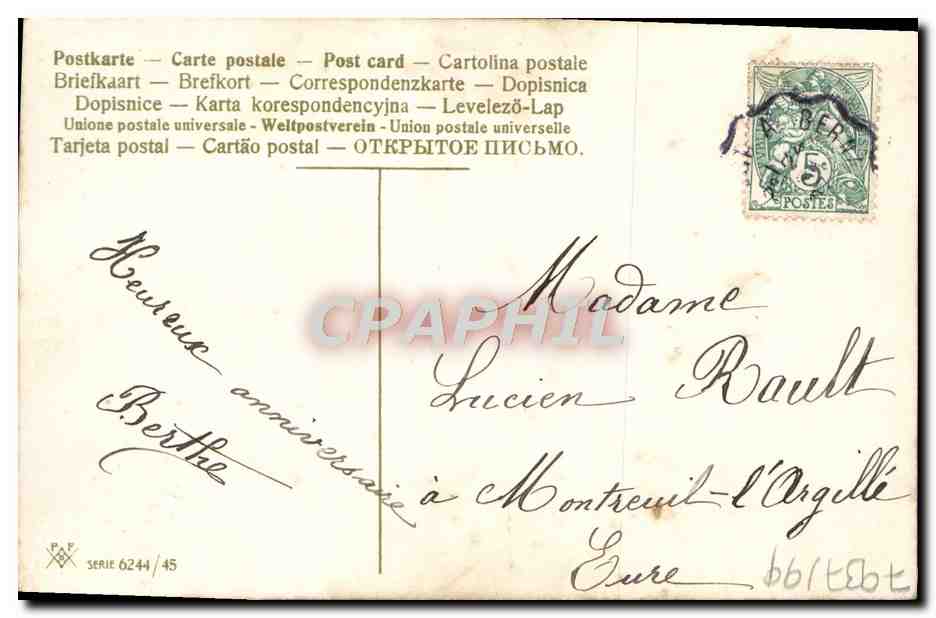 Postkarte — Carte postale — Post card — Cartolina postale
Briefkaart — Brefkort — Correspondenzkarte — Dopisnica
Dopisnice — Karta korespondencyjna — Levelezö-Lap
Unione postale universale - Weltpostverein - Union postale universelle
Tarjeta postal — Cartão postal — ОТКРЫТОЕ ПИСЬМО.
A BERN
5
POSTES
Heureux anniversaire
Berthe
CPAPHIL
Madame
Lucien Rault
à Montreuil-l'Argillé
Eure
P F B
SERIE 6244/45
7937/99